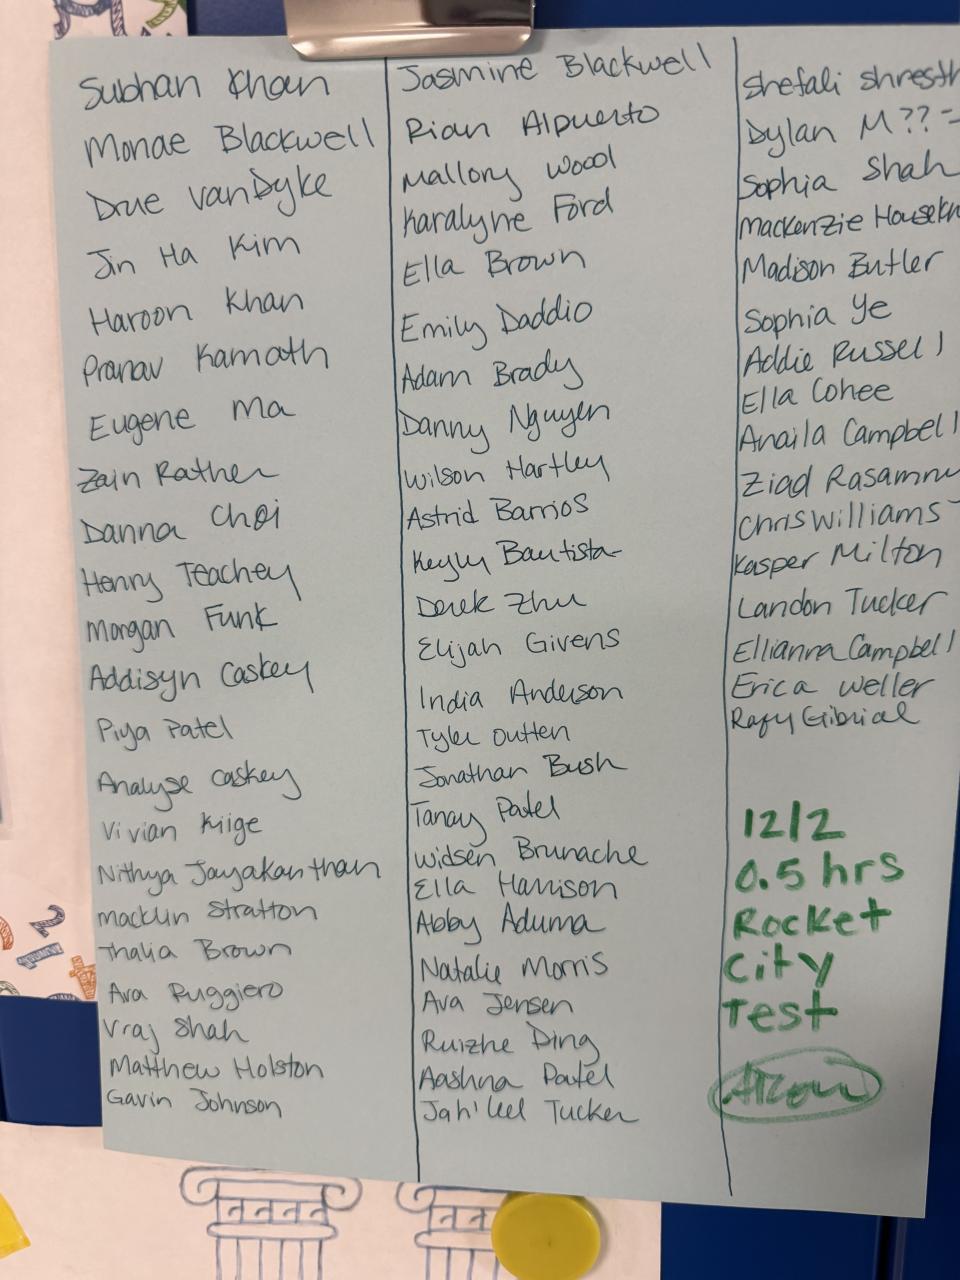 Subhan Khan
Monae Blackwell
Drue VanDyke
Jin Ha Kim
Haroon Khan
Pranav Kamath
Eugene Ma
Zain Rather
Danna Choi
Henry Teachey
Morgan Funk
Addisyn Caskey
Piya Patel
Analyse Caskey
Vivian Kiige
Nithya Jayakanthan
Macklin Stratton
Thalia Brown
Ava Ruggiero
Vraj Shah
Matthew Holston
Gavin Johnson
Jasmine Blackwell
Rian Alpuerto
Mallory Wood
Karalyne Ford
Ella Brown
Emily Daddio
Adam Brady
Danny Nguyen
Wilson Hartley
Astrid Barrios
Keyly Bautista
Derek Zhu
Elijah Givens
India Anderson
Tyler Outten
Jonathan Bush
Tanay Patel
Widsen Brunache
Ella Harrison
Abby Aduma
Natalie Morris
Ava Jensen
Ruizhe Ding
Aashna Patel
Tucker
Shefali
Dylan M??
Sophia Shah
Mackenzie
Madison Butler
Sophia Ye
Addie Russell
Ella Cohee
Anaila Campbell
Ziad
Chris Williams
Kasper Milton
Landon Tucker
Ellianna Campbell
Erica Weller
Rafy
12/2
0.5 hrs
Rocket
City
Test